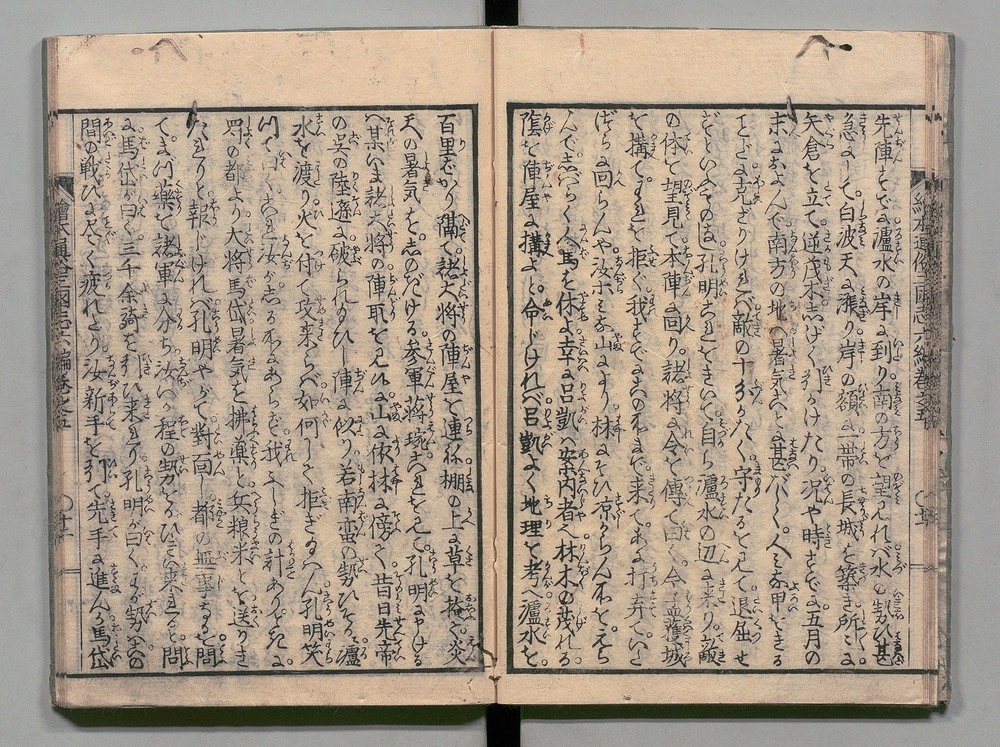 先陣すでに瀘水の岸に到り南の方を望見れバ水の勢ひ甚
急にして白波天に漲り岸の額に一帯の長城を築き所〻に
矢倉を立て逆茂木しげく引かけたり况や時すでに五月の
末におよんで南方の地ハ暑気ことに甚バしく人みな甲をきる
ことに克ざりけれバ敵の十分かたく守たるを見て退屈せ
ずといふものなし孔明これをきいて自ら瀘水の辺に来り敵
の体を望見て本陣に回り諸将に令を傳て曰く今孟獲城
を構てこれを拒ぐ我すでに兵の此まで来てあに打弃ていた
づらに回らんや汝ホみな山により林にそひ凉からん所をえら
んでしバらく人馬を休よ幸に呂凱ハ案内者也林木の茂れる
陰を陣屋に構よと命じけれバ呂凱よく地理を考へ瀘水を
百里ばかり隔て諸大将の陣屋を連作棚の上に草を掩て炎
天の暑気をしのぎける参軍蒋琬これを見て孔明に申ける
ハ某いま諸大将の陣取を見るに山に依林に傍て昔日先帝
の呉の陸遜に破られ玉ひし陣に似り若南蛮の勢ひそかに瀘
水を渡り火を付て攻来らバ如何して拒ぎ玉ハん孔明笑
つて曰くこれ汝がしる所にあらず我ふしぎの計ありときに
蜀の都より大将馬岱暑気を拂薬と兵粮米とを送りき
たれりと報じけれバ孔明やがて對面し都の無事なるを問
て、まづ薬を諸軍に分ち汝いか程の勢をひきゐ来ると問
に馬岱が曰く三千余騎を引来れり孔明が曰くわが勢ハ度〻の
間の戦ひに尽く疲れたり汝新手を引て先手に進んや馬岱
繪本通俗三國志六編巻之五
繪本通俗三國志六編巻之五